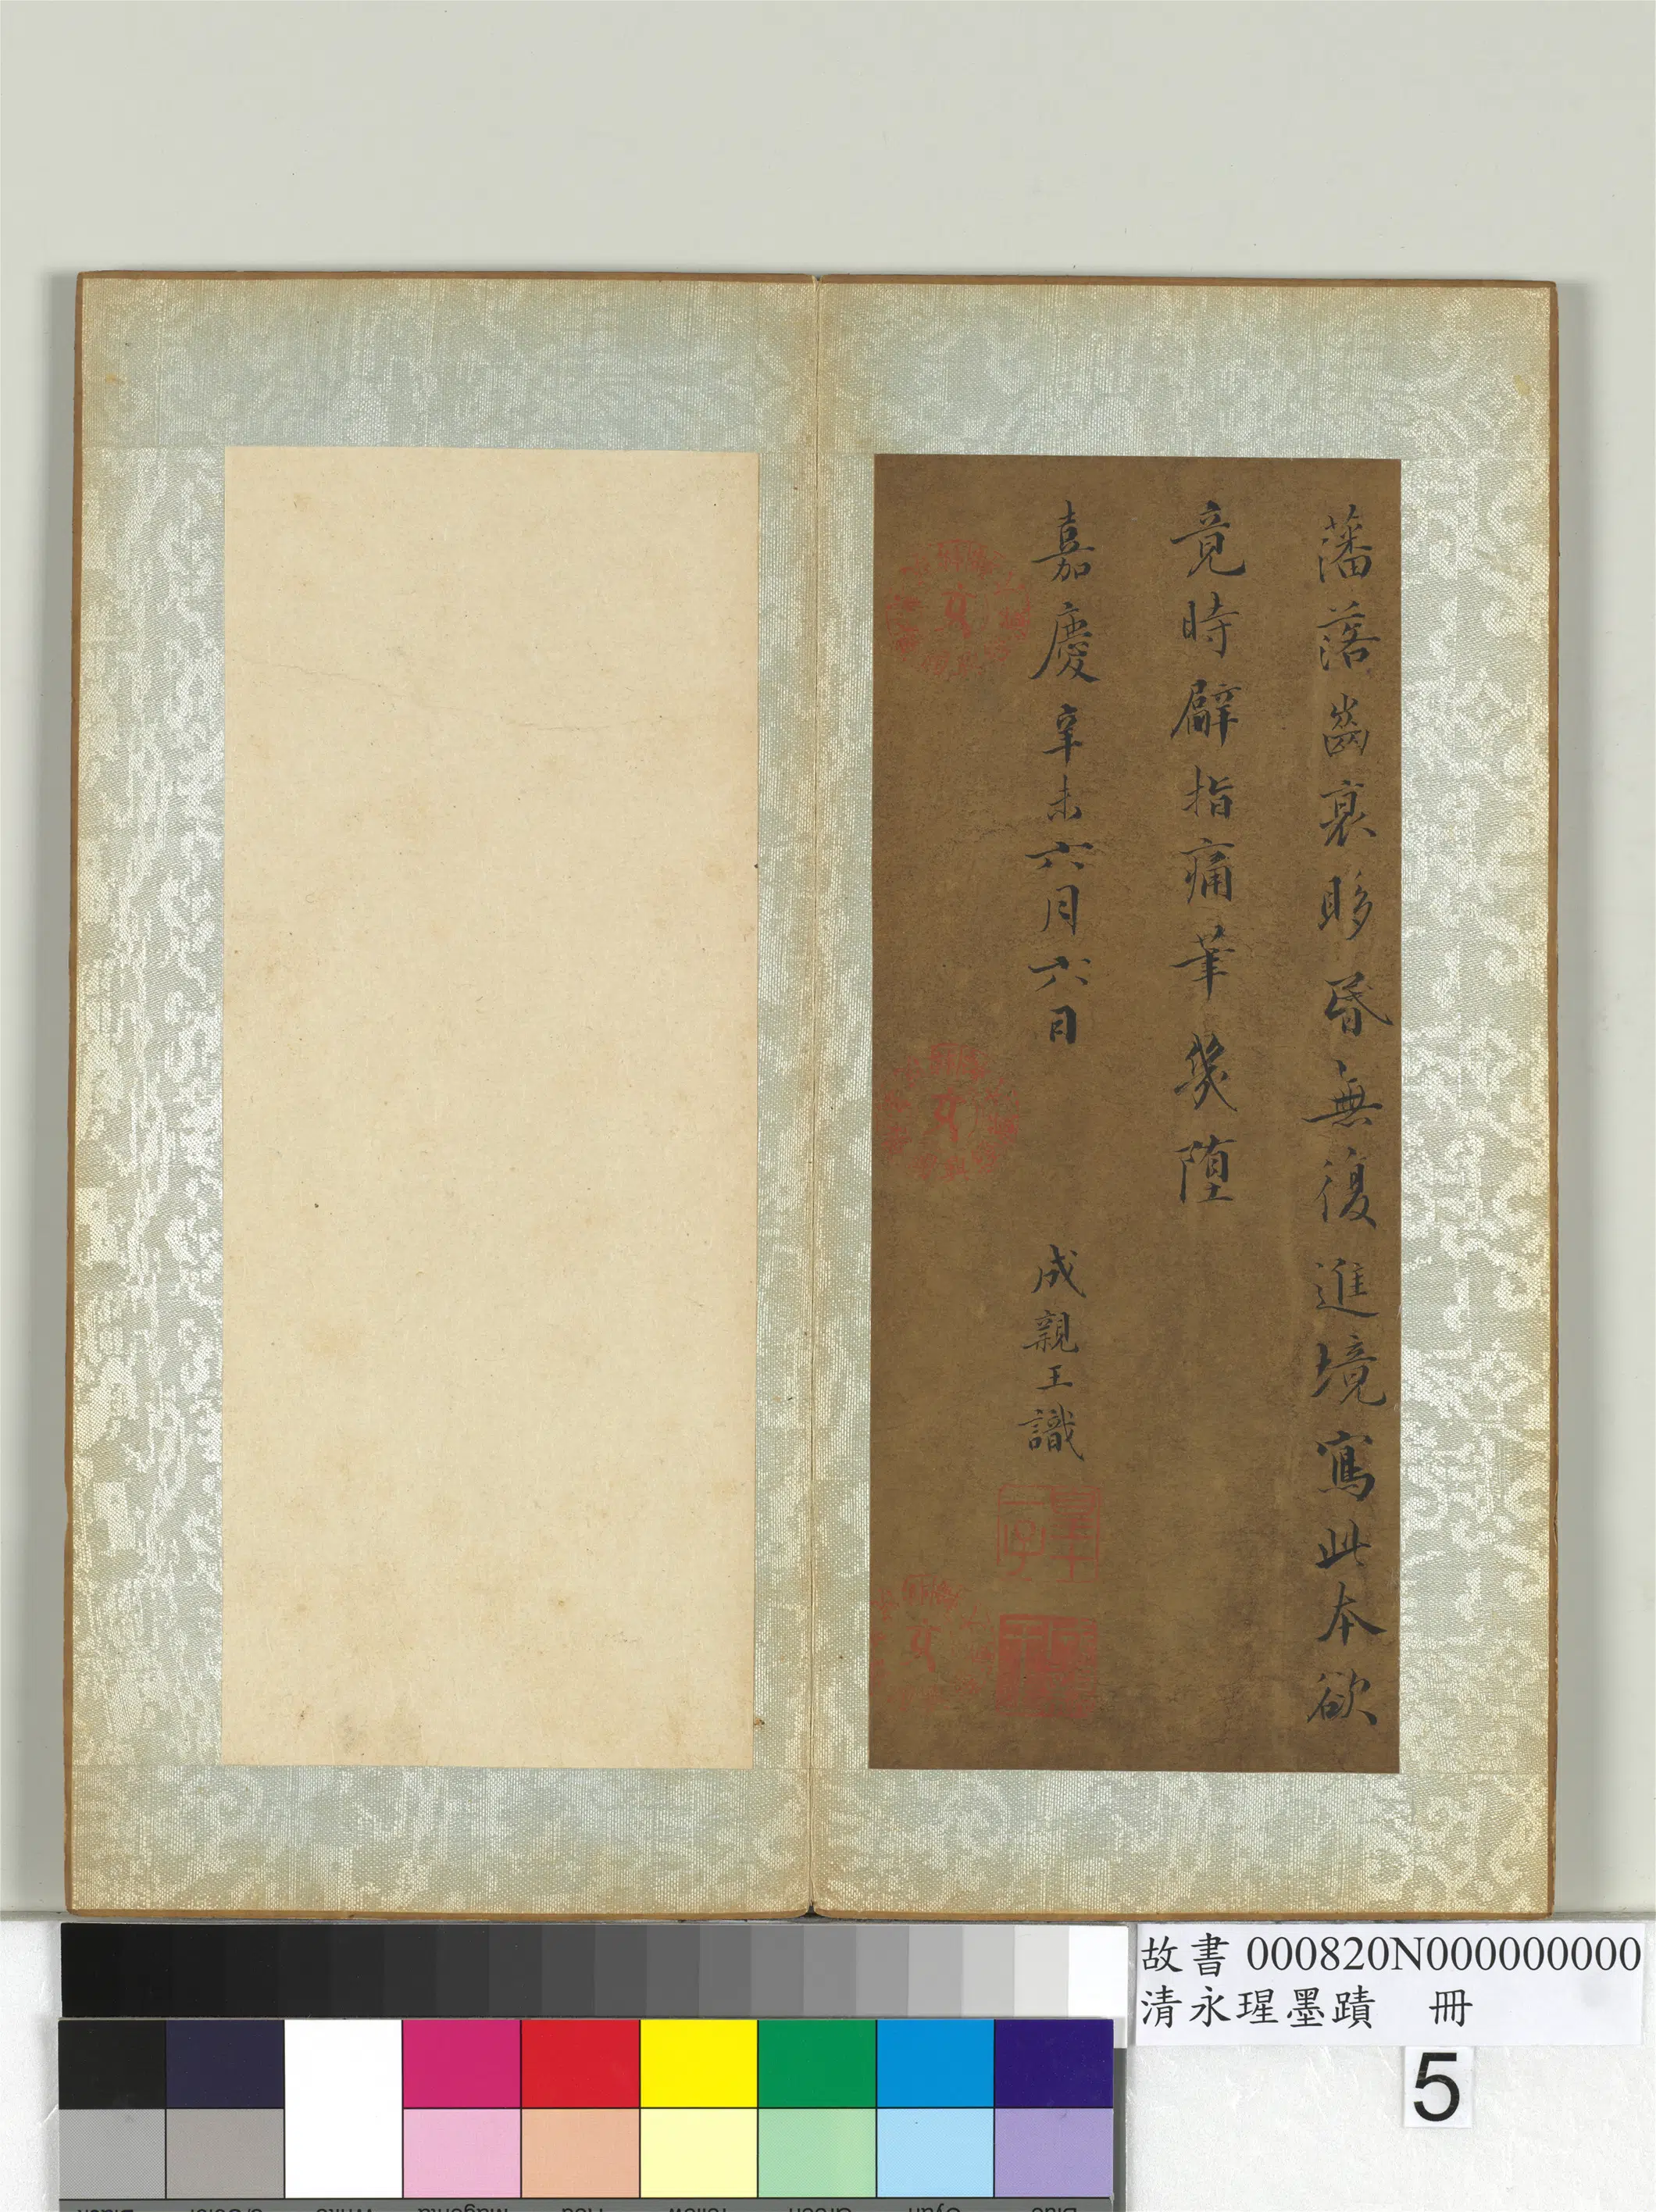 藩落齒衰眵昏無復進境寫此本欲
竟時臂指痛筆幾墮
嘉慶辛未六月六日
成親王識
皇十一子
故書 000820N000000000
清永瑆墨蹟 冊
5